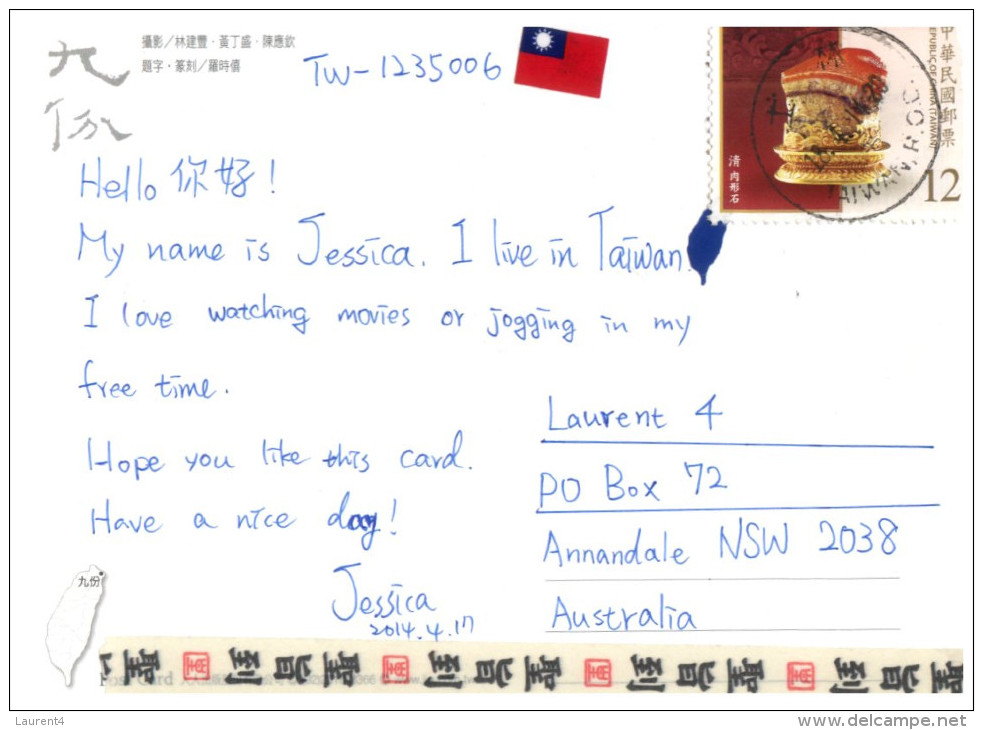 九份
攝影／林建豐・黃丁盛・陳應欽
題字・篆刻／羅時僖
TW-1235006
中華民國郵票
REPUBLIC OF CHINA (TAIWAN)
清 肉形石
12
TAIWAN, R.O.C.
Hello 你好!
My name is Jessica. I live in Taiwan.
I love watching movies or jogging in my
free time.
Hope you like this card.
Have a nice day!
Jessica
2014.4.17
Laurent 4
PO Box 72
Annandale NSW 2038
Australia
九份
聖旨到 聖旨到 聖旨到 聖
Post Card
Laurent4
www.delcampe.net